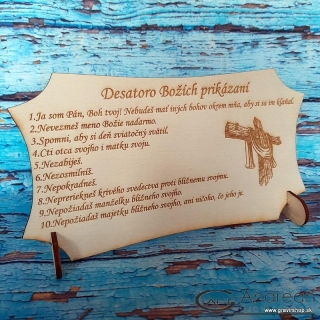 Desatoro Božích prikázaní
1.Ja som Pán, Boh tvoj! Nebudeš mať iných bohov okrem mňa, aby si sa im klaňal.
2.Nevezmeš meno Božie nadarmo.
3.Spomni, aby si deň sviatočný svätil.
4.Cti otca svojho i matku svoju.
5.Nezabiješ.
6.Nezosmilníš.
7.Nepokradneš.
8.Nepreriekneš krivého svedectva proti blížnemu svojmu.
9.Nepožiadaš manželku blížneho svojho.
10.Nepožiadaš majetku blížneho svojho, ani ničoho, čo jeho je.
www.gravirshop.sk